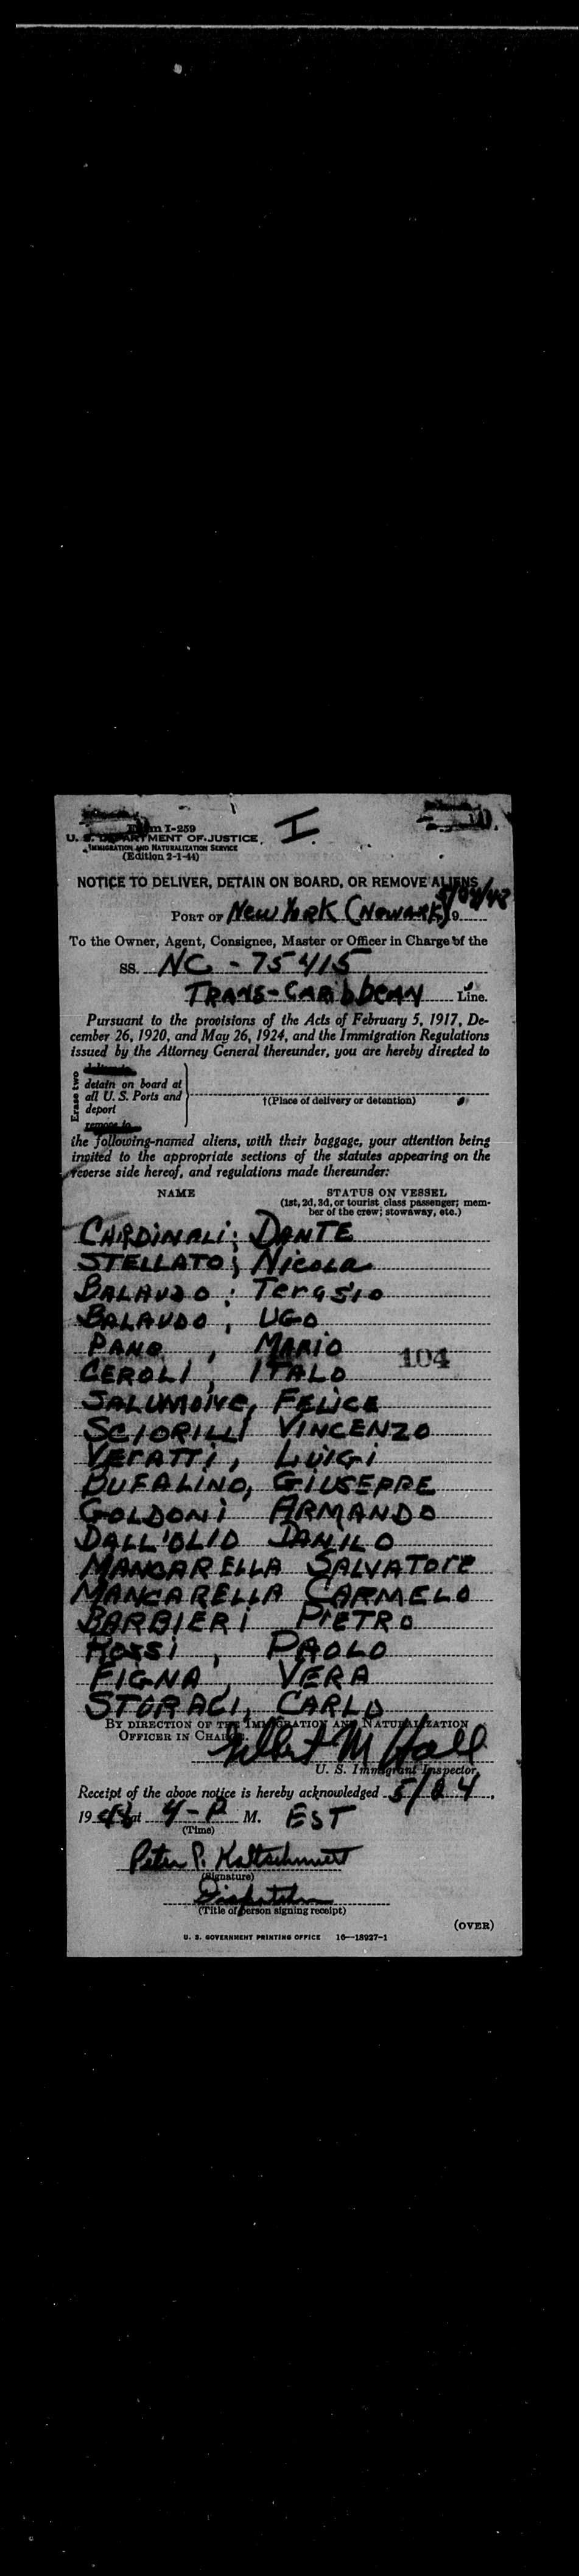 Form I-259
U. S. DEPARTMENT OF JUSTICE
IMMIGRATION AND NATURALIZATION SERVICE
(Edition 2-1-44)
I
NOTICE TO DELIVER, DETAIN ON BOARD, OR REMOVE ALIENS
PORT OF New York (Newark) 19
To the Owner, Agent, Consignee, Master or Officer in Charge of the
SS. NC - 75415
TRANS-CARIbbEAN Line.
Pursuant to the provisions of the Acts of February 5, 1917, De-
cember 26, 1920, and May 26, 1924, and the Immigration Regulations
issued by the Attorney General thereunder, you are hereby directed to
Erase two
detain on board at
all U. S. Ports and
deport
remove to
†(Place of delivery or detention)
the following-named aliens, with their baggage, your attention being
invited to the appropriate sections of the statutes appearing on the
reverse side hereof, and regulations made thereunder:
NAME
STATUS ON VESSEL
(1st, 2d, 3d, or tourist class passenger; mem-
ber of the crew; stowaway, etc.)
CARDINALI; DANTE
STELLATO; Nicola
BALAUDO; 
BALAUDO, UGO
PANO, MARIO
CEROLI, ITALO
104
FELICE
SCIORILLI VINCENZO
VERATTi, LUiGi
BUFALINO, GIUSEPPE
GOLDONi ARMANDO
DALL'OLIO DANILO
MANCARELLA SALVATOre
MANCARELLA CARMELO
BARBIERI PIETRO
ROSSI, PAOLO
FIGNA, VERA
STORACI, CARLO
BY DIRECTION OF THE IMMIGRATION AND NATURALIZATION
OFFICER IN CHARGE.
M Hall
U. S. Immigrant Inspector.
Receipt of the above notice is hereby acknowledged 5/24,
1948 at 4-P M. EST
(Time)
Peter P. Kaltschmitt
(Signature)
Dispatcher
(Title of person signing receipt)
(OVER)
U. S. GOVERNMENT PRINTING OFFICE 16—18927-1